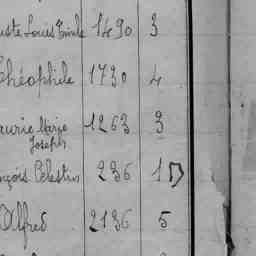 uste Louis Emile 1490 3
Théophile 1730 4
aurice Marie 1263 3
Joseph
nçois Célestin 236 1
Alfred 2136 5